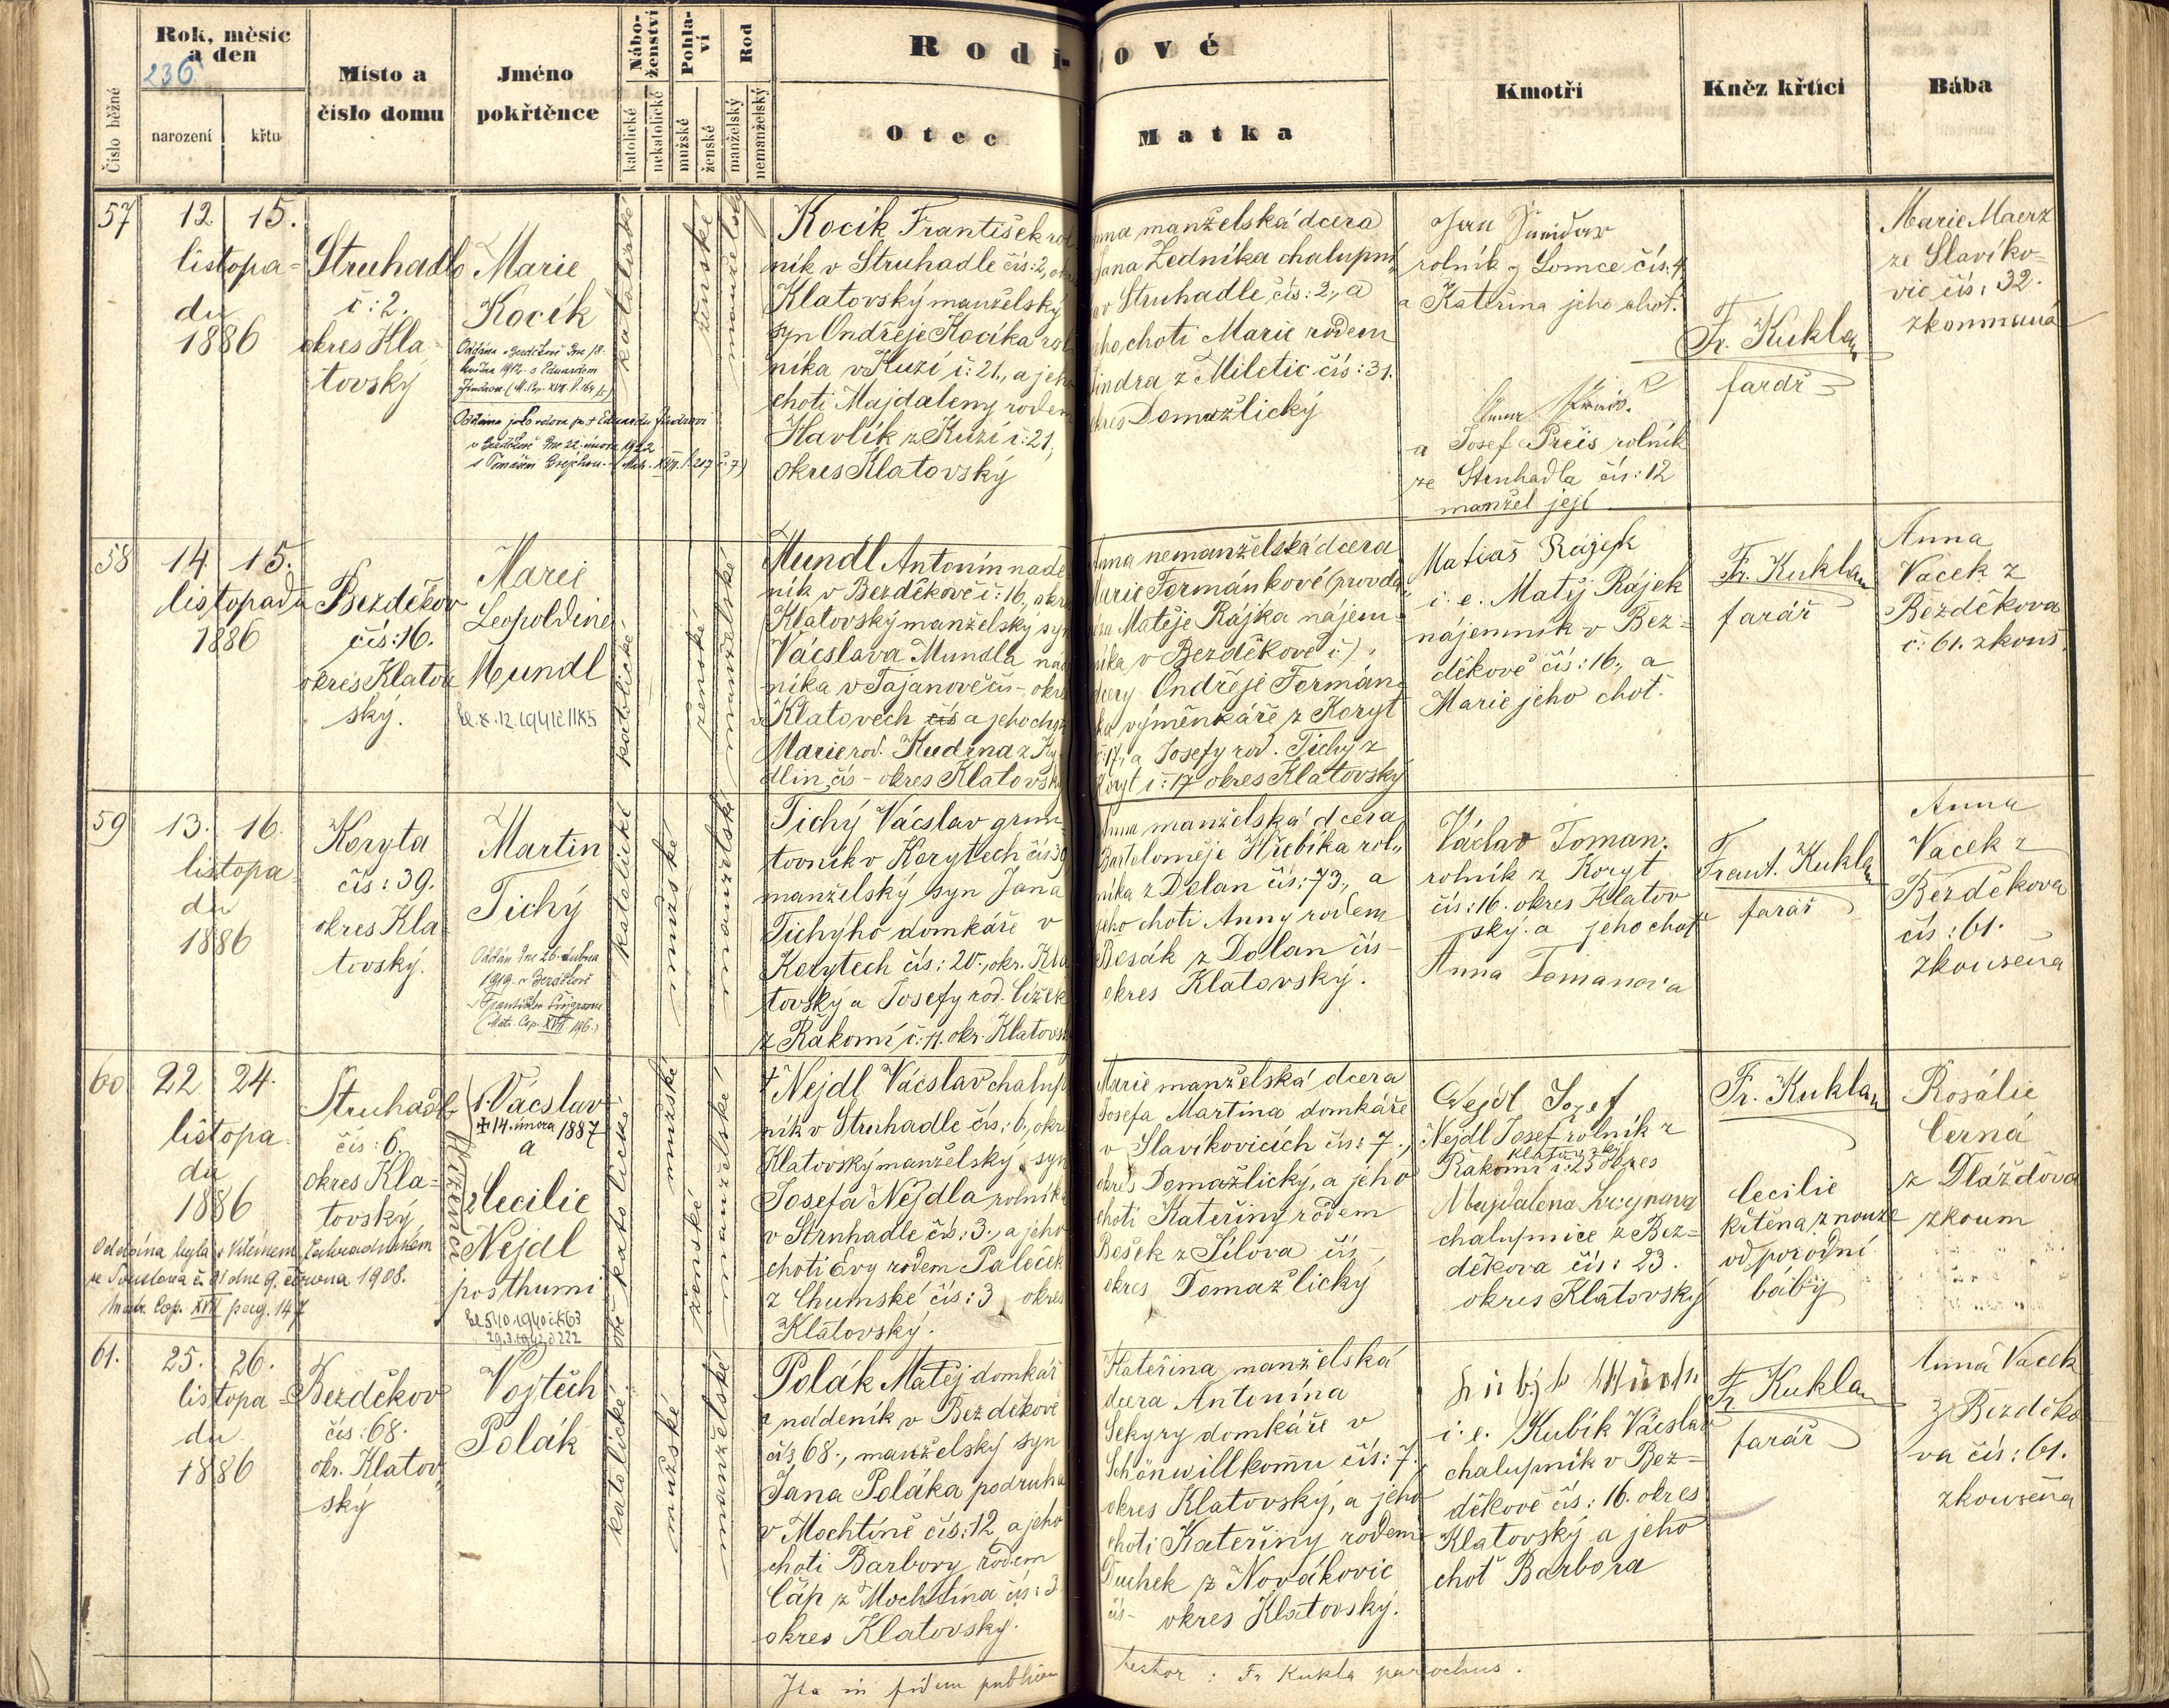 Rok, měsíc
a den
236
narození
křtu
Číslo běžné
Místo a
číslo domu
Jméno
pokřtěnce
Nábo-
ženství
katolické
nekatolické
Pohla-
ví
mužské
ženské
Rod
manželský
nemanželský
Rodi-
ové
Otec
Matka
Kmotři
Kněz křtící
Bába
57
12. 15.
listopa-
du
1886
Struhadlo
č: 2.
okres Kla-
tovský
Marie
Kocík
Oddána v Bezděkově dne 18.
května 1912 s Eduardem
Jindrou (M. Cop. XVII. f. 164
Oddána jako vdova po † Eduardu Jindrovi
v Bezděkově dne 22. února 1922
s Tomášem (Mat. XVII. f. 217 č. 7)
katolické
ženské
manželský
Kocík František rol
ník v Struhadle čís: 2, okres
Klatovský manželský
syn Ondřeje Kocíka rol
níka v Kuzí č: 21., a jeho
choti Majdaleny rodem
Havlík z Kuzí č: 21,
okres Klatovský
Anna manželská dcera
Jana Zedníka chalupní
v Struhadle, čís: 2., a
jeho choti Marie rodem
Jindra z Miletic čís: 31.
okres Domažlický
Jan
rolník z Lomce čís: 4
a Kateřina jeho choť.
Anna
a Josef Preis rolník
ze Struhadla čís: 12
manžel její.
Fr. Kukla
farář
Marie Maerz
ze Slavíko-
vic čís: 32.
zkoumaná
58
14. 15.
listopadu
1886
Bezděkov
čís: 16.
okres Klatov
ský.
Marie
Leopoldine
Mundl
be. 8. 12. 1941 č 1185
katolické
ženské
manželské
Mundl Antonín nade-
ník v Bezděkově č: 16., okres
Klatovský manželský syn
Václava Mundla nád
níka v Tajanově čís - okres
v Klatovech čís a jeho choti
Marie rod. Kudrna z Ky
dlin, čís - okres Klatovský
Anna nemanželská dcera
Marie Formánkové (provda
Matěje Rájka nájem-
níka v Bezděkově č:),
dcery Ondřeje Formán-
ka výměnkáře z Koryt
č: 17., a Josefy rod. Tichý z
Koryt č: 17 okres Klatovský
Matiaš Rajek
i. e. Matěj Rájek
nájemník v Bez-
děkově čís: 16., a
Marie jeho choť.
Fr. Kukla
farář
Anna
Vacek z
Bezděkova
č: 61. zkouš.
59
13. 16.
listopa-
du
1886
Koryta
čís: 39.
okres Kla-
tovský.
Martin
Tichý
Oddán dne 26. dubna
1919 v Bezděkově
s Františkou
(Matr. Cop. XVII 196.)
katolické
mužské
manželské
Tichý Václav grun-
tovník v Korytech čís 39,
manželský syn Jana
Tichýho domkáře v
Korytech čís: 20., okr. Kla
tovský a Josefy rod. Čížek
z Řakomí č: 11. okr. Klatovský
Anna manželská dcera
Bartoloměje Hřebíka rol-
níka z Dolan čís: 73., a
jeho choti Anny rodem
Besák z Dolan čís -
okres Klatovský.
Václav Toman.
rolník z Koryt
čís: 16. okres Klatov
ský. a jeho choť
Anna Tomanova
Frant. Kukla
farář
Anna
Vacek z
Bezděkova
čís: 61.
zkoušená
60
22 24.
listopa-
du
1886
Struhadlo
čís: 6.
okres Kla-
tovský
blíženci
1. Václav
✠ 14. února 1887
a
2 Cecilie
Nejdl
posthumi
be 5. 10. 1940 č. 563
29. 3. 1942 č 222
Oddána byla s Vilémem Zahradníkem
ze Soustova č. 91 dne 9. června 1908.
Matr. Cop. XVII pag. 147
obě katolické
mužské
ženské
manželské
† Nejdl Václav chalup
ník v Struhadle čís: 6., okres
Klatovský manželský syn
Josefa Nejdla rolníka
v Struhadle čís: 3., a jeho
choti Evy rodem Paleček
z Chumské čís: 3 okres
Klatovský.
Marie manželská dcera
Josefa Martina domkáře
v Slavíkovicích čís: 7.,
okres Domažlický, a jeho
choti Kateřiny rodem
Bešek z Jílova čís -,
okres Domažlický
Nejdl Josef
Nejdl Josef rolník z
Klatovský
Řakomi č: 25 okres
Majdalena
chalupnice z Bez-
děkova čís: 23.
okres Klatovský
Fr. Kukla
Cecilie
křtěna z nouze
od porodní
báby
Rosálie
Černá
z Dlažďova
zkoum
61.
25. 26.
listopa-
du
1886
Bezděkov
čís: 68.
okr. Klatov
ský
Vojtěch
Polák
katolické
mužské
manželské
Polák Matěj domkář
a nádeník v Bezděkově
čís 68., manželský syn
Jana Poláka podruha
v Mochtíně čís: 12 a jeho
choti Barbory rodem
Čáp z Mochtína čís: 3
okres Klatovský.
Kateřina manželská
dcera Antonína
Sekyry domkáře v
Schönwillkomu čís: 7.,
okres Klatovský, a jeho
choti Kateřiny rodem
Duchek z Novákovic
čís - okres Klatovský.
i. e. Kubík Václav
chalupník v Bez-
děkově čís: 16. okres
Klatovský a jeho
choť Barbora
Fr. Kukla
farář
Anna Vacek
z Bezděko
va čís: 61.
zkoušená
Ita in fidem publicam
testor: Fr Kukla parochus.